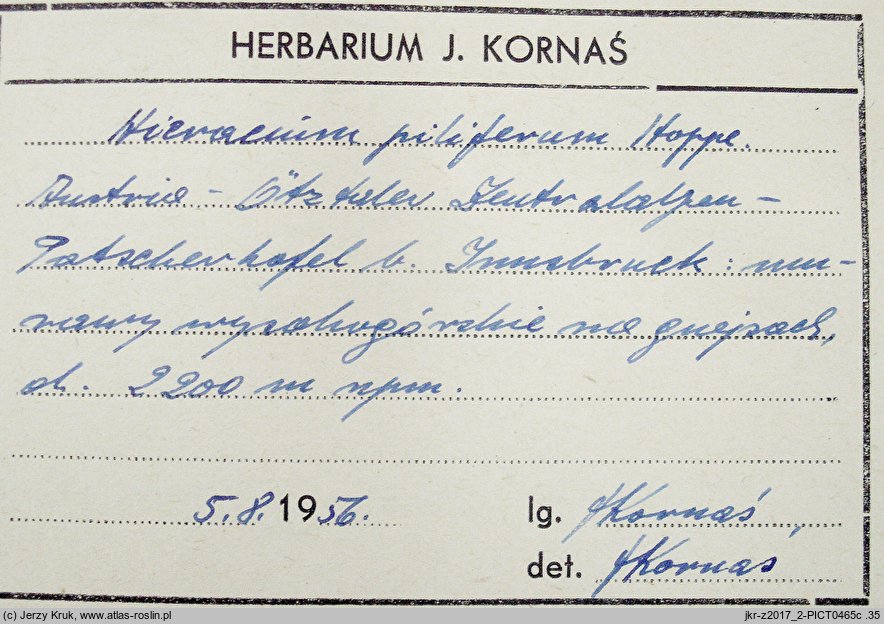 HERBARIUM J. KORNAŚ
Hieracium piliferum Hoppe.
Austria – Ötztaler Zentralalpen –
Patscherkofel b. Innsbruck: mu-
rawy wysokogórskie na gnejsach,
ok. 2200 m npm.
5.8.1956.
lg. JKornaś,
det. JKornaś
(c) Jerzy Kruk, www.atlas-roslin.pl
jkr-z2017_2-PICT0465c .35